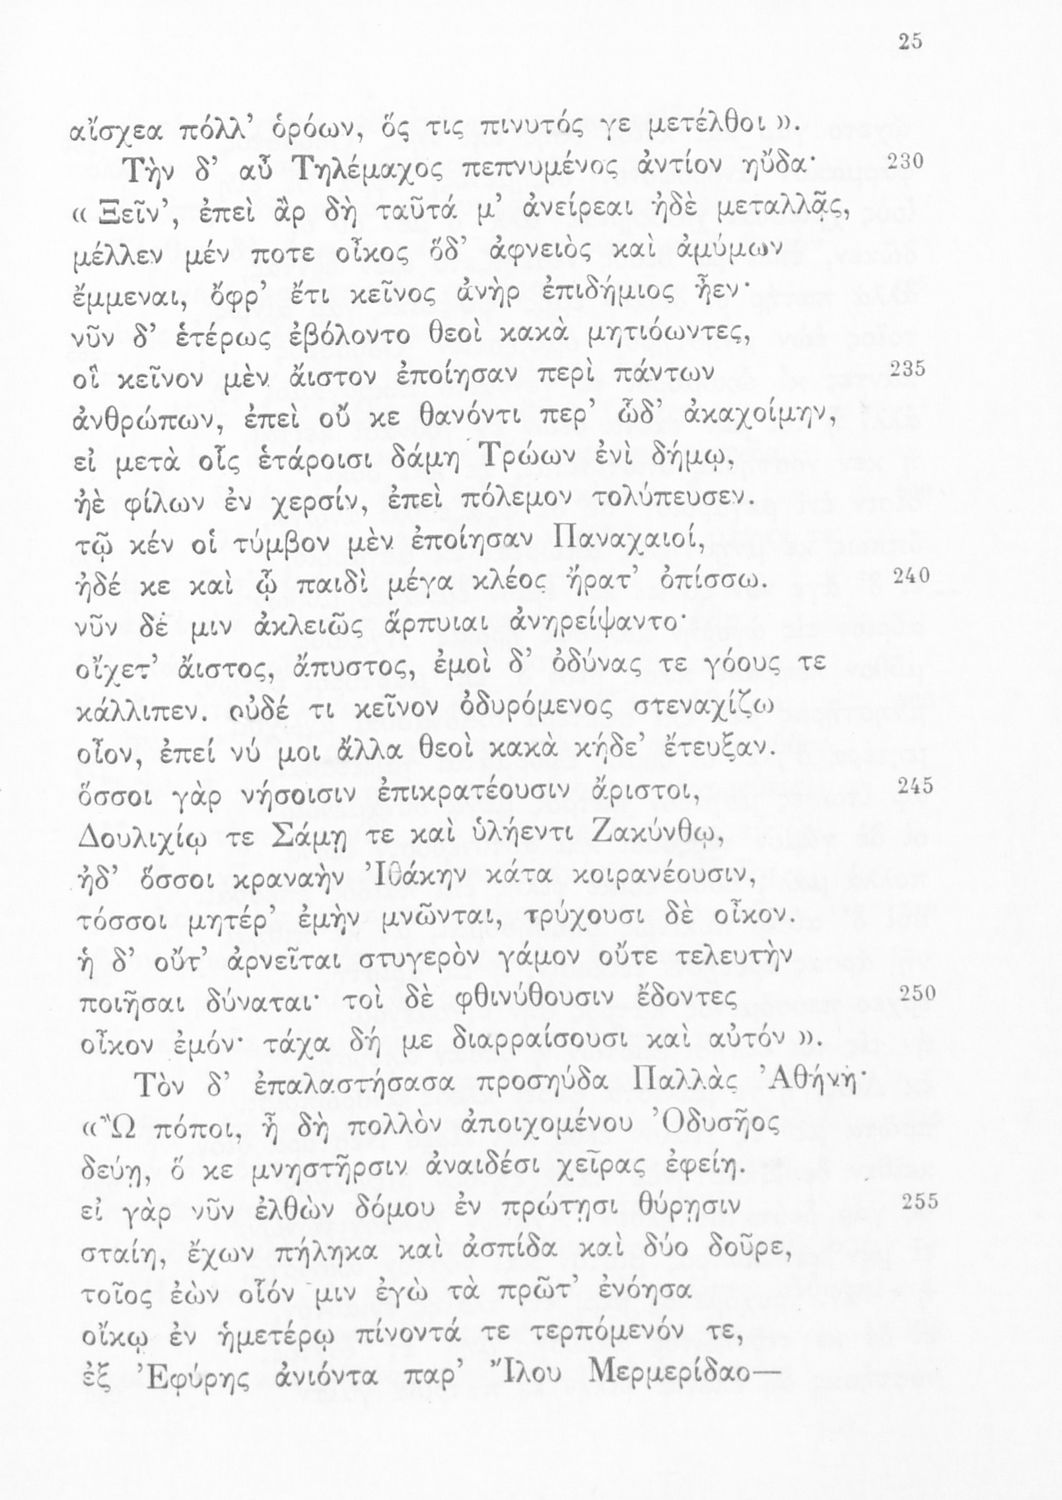 25
αἴσχεα πόλλ’ ὁρόων, ὅς τις πινυτός γε μετέλθοι ».
Τὴν δ’ αὖ Τηλέμαχος πεπνυμένος ἀντίον ηὔδα· 230
« Ξεῖν’, ἐπεὶ ἂρ δὴ ταῦτά μ’ ἀνείρεαι ἠδὲ μεταλλᾷς,
μέλλεν μέν ποτε οἶκος ὅδ’ ἀφνειὸς καὶ ἀμύμων
ἔμμεναι, ὄφρ’ ἔτι κεῖνος ἀνὴρ ἐπιδήμιος ἦεν·
νῦν δ’ ἑτέρως ἐβόλοντο θεοὶ κακὰ μητιόωντες,
οἳ κεῖνον μὲν ἄιστον ἐποίησαν περὶ πάντων 235
ἀνθρώπων, ἐπεὶ οὔ κε θανόντι περ’ ὧδ’ ἀκαχοίμην,
εἰ μετὰ οἷς ἑτάροισι δάμη Τρώων ἐνὶ δήμῳ,
ἠὲ φίλων ἐν χερσίν, ἐπεὶ πόλεμον τολύπευσεν.
τῷ κέν οἱ τύμβον μὲν ἐποίησαν Παναχαιοί,
ἠδέ κε καὶ ᾧ παιδὶ μέγα κλέος ἤρατ’ ὀπίσσω. 240
νῦν δέ μιν ἀκλειῶς ἅρπυιαι ἀνηρείψαντο·
οἴχετ’ ἄιστος, ἄπυστος, ἐμοὶ δ’ ὀδύνας τε γόους τε
κάλλιπεν. οὐδέ τι κεῖνον ὀδυρόμενος στεναχίζω
οἶον, ἐπεί νύ μοι ἄλλα θεοὶ κακὰ κήδε’ ἔτευξαν.
ὅσσοι γὰρ νήσοισιν ἐπικρατέουσιν ἄριστοι, 245
Δουλιχίῳ τε Σάμῃ τε καὶ ὑλήεντι Ζακύνθῳ,
ἠδ’ ὅσσοι κραναὴν Ἰθάκην κάτα κοιρανέουσιν,
τόσσοι μητέρ’ ἐμὴν μνῶνται, τρύχουσι δὲ οἶκον.
ἡ δ’ οὔτ’ ἀρνεῖται στυγερὸν γάμον οὔτε τελευτὴν
ποιῆσαι δύναται· τοὶ δὲ φθινύθουσιν ἔδοντες 250
οἶκον ἐμόν· τάχα δή με διαρραίσουσι καὶ αὐτόν ».
Τὸν δ’ ἐπαλαστήσασα προσηύδα Παλλὰς Ἀθήνη·
« Ὢ πόποι, ἦ δὴ πολλὸν ἀποιχομένου Ὀδυσῆος
δεύῃ, ὅ κε μνηστῆρσιν ἀναιδέσι χεῖρας ἐφείη.
εἰ γὰρ νῦν ἐλθὼν δόμου ἐν πρώτῃσι θύρῃσιν 255
σταίη, ἔχων πήληκα καὶ ἀσπίδα καὶ δύο δοῦρε,
τοῖος ἐὼν οἷόν μιν ἐγὼ τὰ πρῶτ’ ἐνόησα
οἴκῳ ἐν ἡμετέρῳ πίνοντά τε τερπόμενόν τε,
ἐξ Ἐφύρης ἀνιόντα παρ’ Ἴλου Μερμερίδαο—